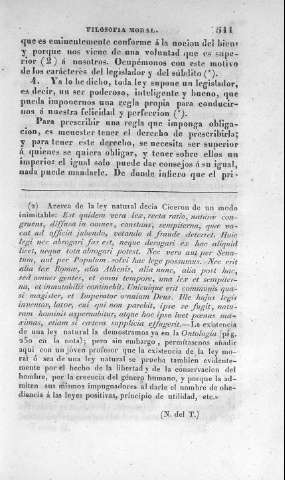 FILOSOFIA MORAL. 511
que es eminentemente conforme á la nocion del bien,
y porque nos viene de una voluntad que es supe-
rior (2) á nosotros. Ocupémonos con este motivo
de los carácteres del legislador y del súbdito (*).
4. Ya lo he dicho, toda ley supone un legislador,
es decir, un ser poderoso, inteligente y bueno, que
pueda imponernos una regla propia para conducir-
nos á nuestra felicidad y perfeccion (*).
Para prescribir una regla que imponga obliga-
cion, es menester tener el derecho de prescribirla;
y para tener este derecho, se necesita ser superior
á quienes se quiera obligar, y tener sobre ellos un
imperio: el igual solo puede dar consejos á su igual,
nada puede mandarle. De donde infiero que el pri-
(2) Acerca de la ley natural decia Ciceron de un modo
inimitable: Est quidem vera lex, recta ratio, naturæ con-
gruens, diffusa in omnes, constans, sempiterna, quæ vo-
cat ad officia jubendo, vetando á fraude deterret. Huic
legi nec abrogari fas est, neque derogari ex hac aliquid
licet, neque tota abrogari potest. Nec vero aut per Sena-
tum, aut per Populum solvi hac lege possumus. Nec erit
alia lex Romæ, alia Athenis, alia nunc, alia post hac,
sed omnes gentes, et omni tempore, una lex et sempiter-
na, et inmutabilis continebit. Unicuique erit communis qua-
si magister, et Imperator omnium Deus. Ille hujus legis
inventor, lator, cui qui non parebit, ipse se fugit, natu-
ram hominis aspernabitur, atque hoc ipso luet pœnas ma-
ximas, etiam si cætera supplicia effugerit.—La existencia
de una ley natural la demostramos ya en la Ontología (pág.
250 en la nota); pero sin embargo, permítasenos añadir
aquí con un jóven profesor que la existencia de la ley mo-
ral ó sea de una ley natural se prueba tambien evidente-
mente por el hecho de la libertad y de la conservacion del
hombre, por la creencia del género humano, y porque la ad-
miten sus mismos impugnadores al darle el nombre de obe-
diencia á las leyes positivas, principio de utilidad, etc.
(N. del T.)